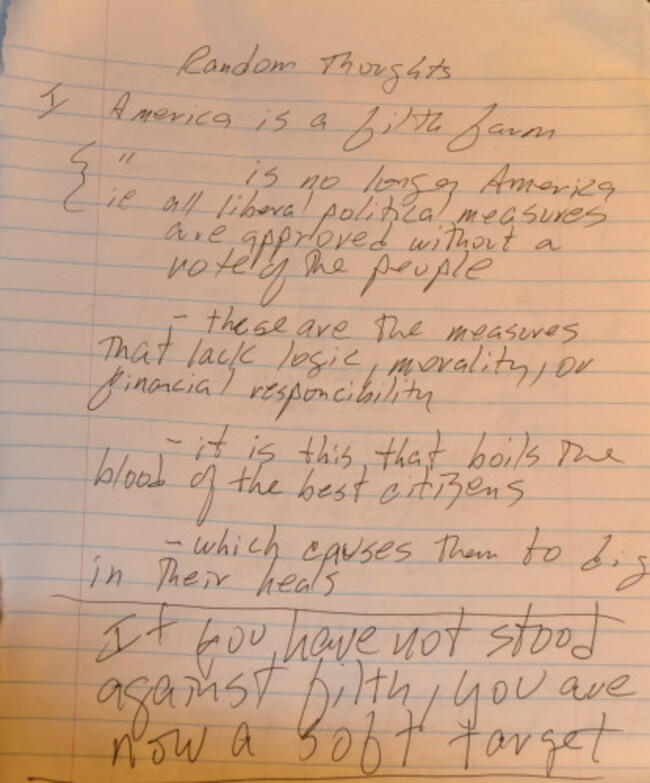 Random Thoughts
I America is a filth farm
{ " is no longer America
ie all liberal political measures
are approved without a
vote of the people
- these are the measures
that lack logic, morality, or
financial responcibility
- it is this that boils the
blood of the best citizens
- which causes them to dig
in their heals
If you have not stood
against filth, you are
now a soft target